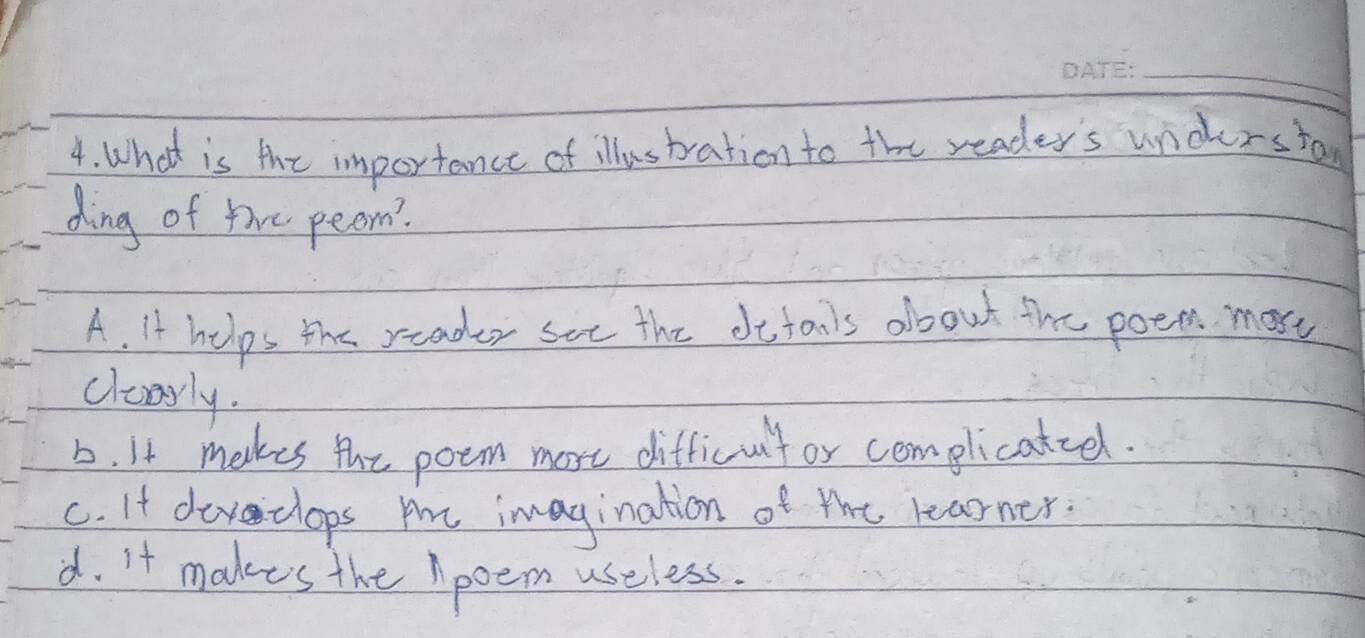 DATE:
4. What is the importance of illustration to the reader's understan
ding of the peom?
A. it helps the reader see the details about the poem more
clearly.
b. It makes the poem more difficult or complicated.
c. It develops the imagination of the learner.
d. it makes the poem useless.